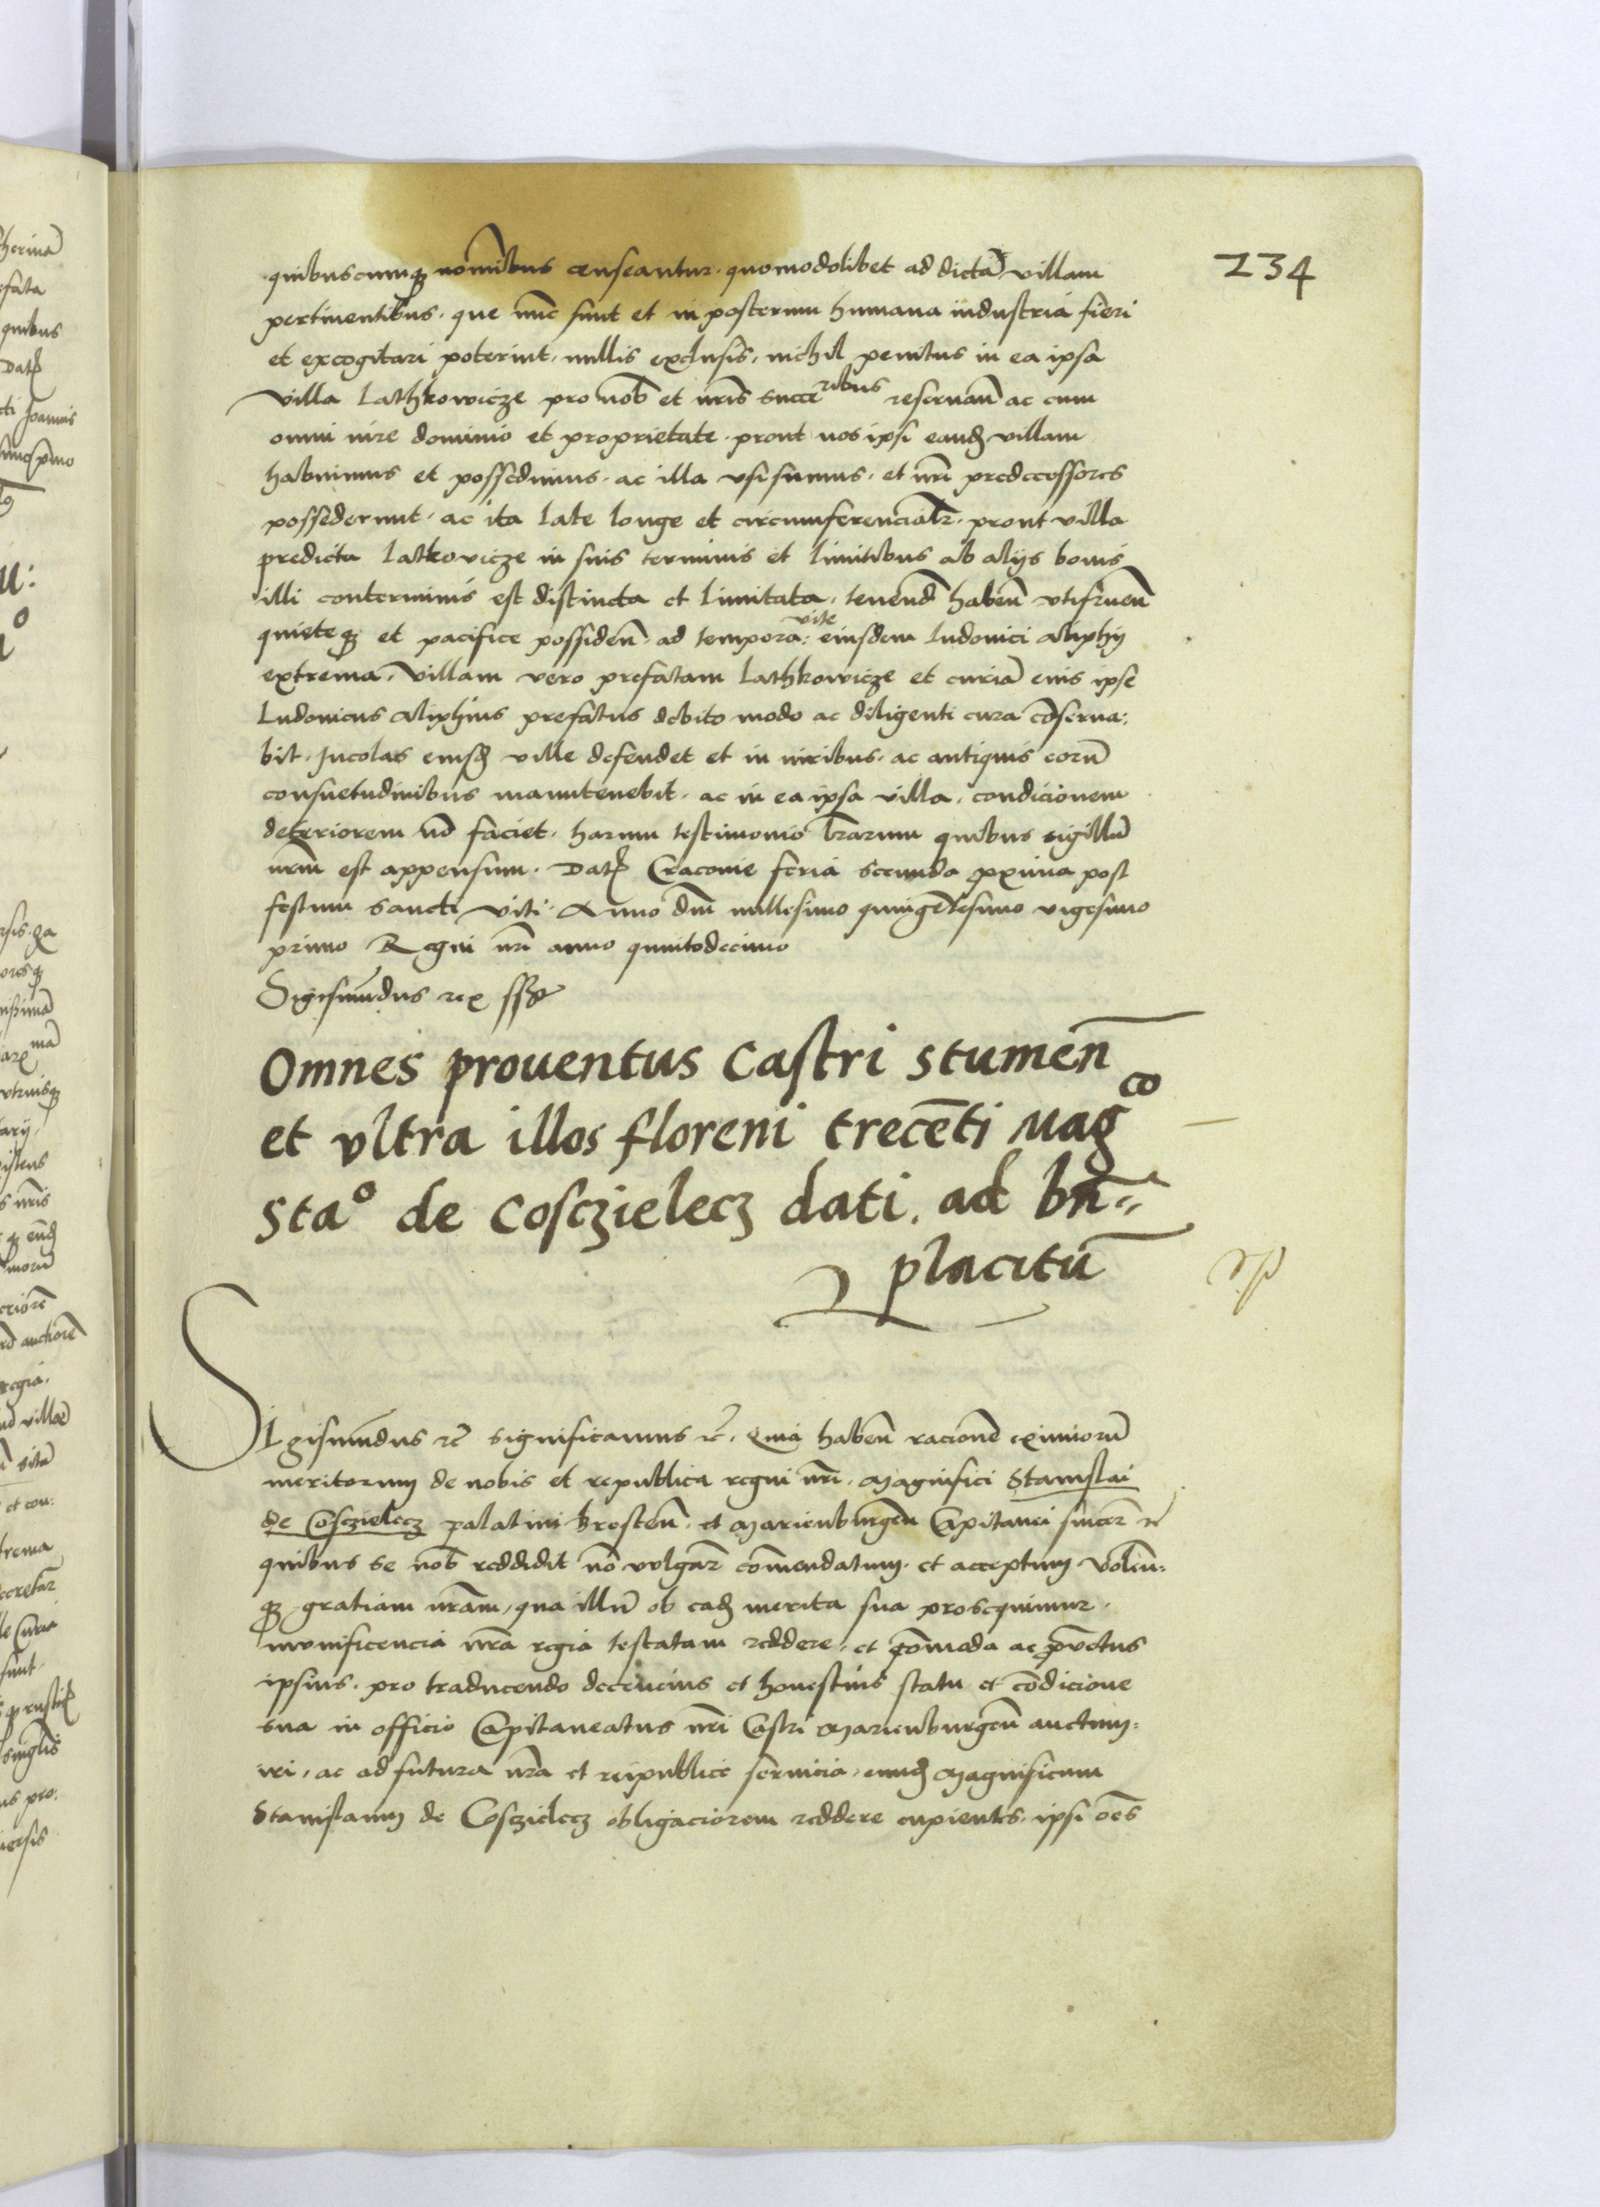 234
quibuscumq₃ noīnibus censeantur. quomodolibet ad dictā villam
pertinentibus. que nūc sunt et in posterum humana industria fieri
et excogitari poterint. nullis exclusis, nichil penitus in ea ipsa
villa Lathkowicze pro nob̄ et nr̄is succe ribus reseruañ ac cum
omni iure dominio et proprietate. prout nos ipsi eand villam
habuimus et possedimus. ac illa vsi sumus. et nr̄i predecessores
possederunt. ac ita late longe et circumferencialr̄. prout villa
predicta Latkovicze in suis terminis et limitibus ab alijs bonis
illi conterminis est distincta et limitata. tenend habeñ vtifrueñ
quieteq₃ et pacifice possideñ. ad tempora: vite eiusdem Ludouici Aliphij
extrema. Villam vero prefatam Lathkowicze et curiā eius ipse
Ludouicus Aliphius prefatus debito modo ac diligenti cura cōserua:
bit. Incolas eiusd ville defendet et in iuribus. ac antiquis eorū
consuetudinibus manutenebit. ac in ea ipsa villa. condicionem
deteriorem nō faciet. harum testimonio lr̄arum quibus sigillū
nrm̄ est appensum. Dat Cracouie feria secunda proxima post
festum sancti Viti. Anno dnī millesimo quingētesimo vigesimo
primo Regni nr̄i anno quintodecimo
Sigismūdus rex sst
Omnes prouentus Castri Stumeñ
et vltra illos floreni trecēti Magco
Stao de Cosczielecz dati. ad bn̄
placitū
SIgismūdus rc̄ significamus rc̄. Quia habeñ racionē eximiorū
meritorum de nobis et republica regni nr̄i. Magnifici Stanislai
de Cosczielecz palatini bresteñ. et Marienburgeñ Capitanei sincer̄ rc̄
quibus se nob̄ reddidit nō vulgar̄ cōmendatum. et acceptum. Volen:
q₃ gratiam nr̄am, qua illū ob ead merita sua prosequimur.
munificencia nr̄a regia testatam reddere. et cōmoda ac prouētus
ipsius. pro traducendo decencius et honestius statu et cōdicione
sua in officio Capitaneatus nr̄i Castri Marienburgeñ
ac ad futura nr̄a et reipublice seruicia. eund Magnificum
Stanislaum de Cosczielecz obligaciorem reddere cupientes. ipsi oēs